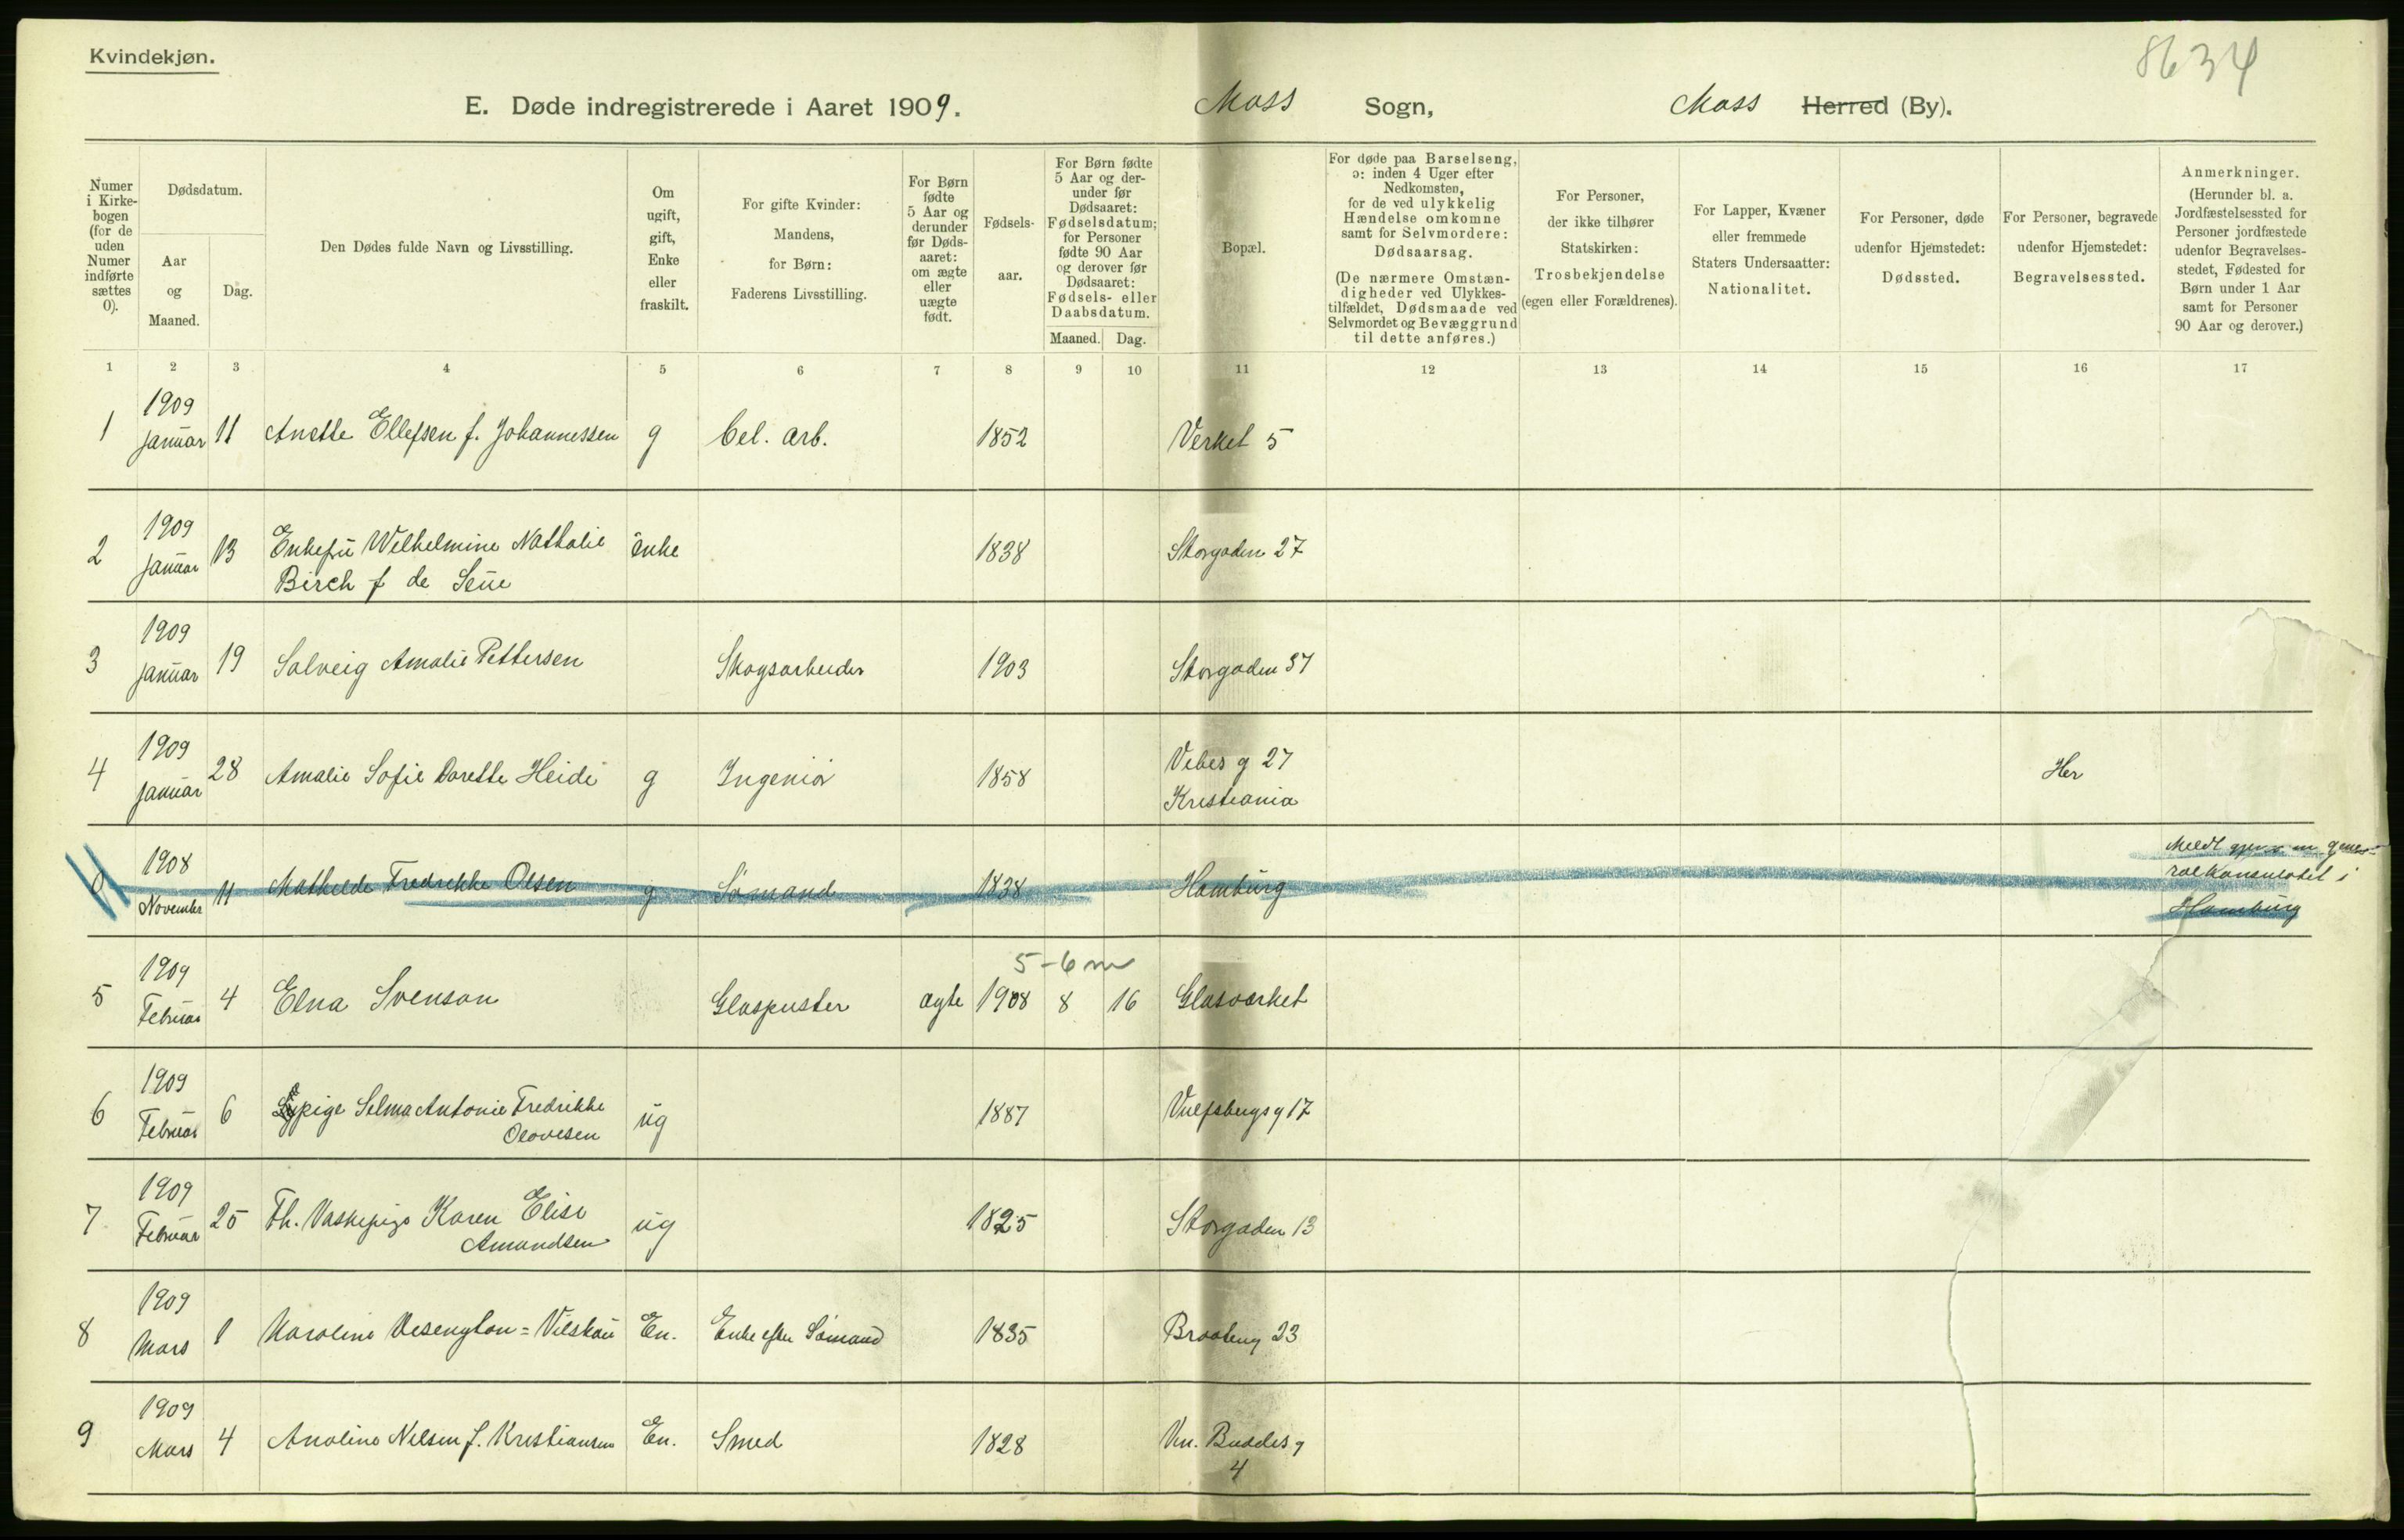 Kvindekjøn.
8634
E. Døde indregistrerede i Aaret 1909. Moss Sogn, Moss Herred (By).
Numer i Kirke-bogen (for de uden Numer indførte sættes 0).
Dødsdatum.
Aar og Maaned.
Dag.
Den Dødes fulde Navn og Livsstilling.
Om ugift, gift, Enke eller fraskilt.
For gifte Kvinder: Mandens, for Børn: Faderens Livsstilling.
For Børn fødte 5 Aar og derunder før Døds-aaret: om ægte eller uægte født.
Fødsels-aar.
For Børn fødte 5 Aar og der-under før Dødsaaret: Fødselsdatum; for Personer fødte 90 Aar og derover før Dødsaaret: Fødsels- eller Daabsdatum.
Maaned. Dag.
Bopæl.
For døde paa Barselseng, ɔ: inden 4 Uger efter Nedkomsten, for de ved ulykkelig Hændelse omkomne samt for Selvmordere: Dødsaarsag. (De nærmere Omstæn-digheder ved Ulykkes-tilfældet, Dødsmaade ved Selvmordet og Bevæggrund til dette anføres.)
For Personer, der ikke tilhører Statskirken: Trosbekjendelse (egen eller Forældrenes).
For Lapper, Kvæner eller fremmede Staters Undersaatter: Nationalitet.
For Personer, døde udenfor Hjemstedet: Dødssted.
For Personer, begravede udenfor Hjemstedet: Begravelsessted.
Anmerkninger. (Herunder bl. a. Jordfæstelsessted for Personer jordfæstede udenfor Begravelses-stedet, Fødested for Børn under 1 Aar samt for Personer 90 Aar og derover.)
1 2 3 4 5 6 7 8 9 10 11 12 13 14 15 16 17
1 1909 Januar 11 Anette Ellefsen f. Johannessen g Cel. arb. 1852 Verket 5
2 1909 Januar 13 Enkefru Wilhelmine Nathalie enke 1838 Storgaden 27
Birch f de Seue
3 1909 Januar 19 Solveig Amalie Pettersen Skogsarbeider 1903 Storgaden 37
4 1909 Januar 28 Amalie Sofie Dorette Heide g Ingeniør 1858 Vibes g 27 Her
Kristiania
0 1908 November 11 Mathilde Fredrikke Olsen g Sømand 1838 Hamburg
Meddt gjen. gene-
ralkonsulatet i
Hamburg
5-6 m
5 1909 Februar 4 Elna Svenson Glaspuster ægte 1908 8 16 Glasværket
6 1909 Februar 6 Sypige Selma Antonie Fredrikke ug 1887 Vulfsbergs g 17
Olovesen
7 1909 Februar 25 Fh. Vaskepige Karen Elise ug 1825 Storgaden 13
Amundsen
8 1909 Mars 1 Karoline En. Enke efter Sømand 1835 Braateng 23
9 1909 Mars 4 Anoline Nilsen f. Kristiansen En. Smed 1828 Vin. Buddes g
4